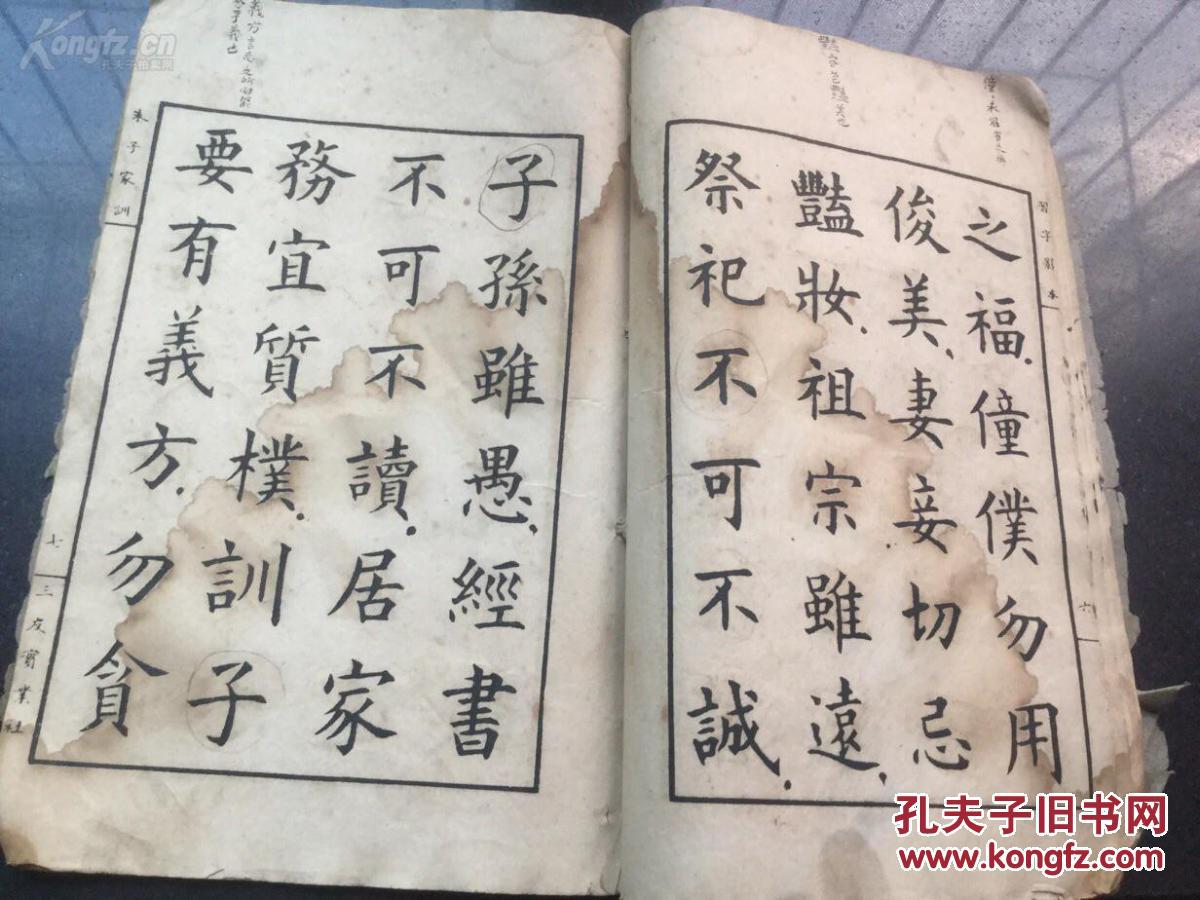 僮、未冠者之稱
習字影本
六
之福.僮僕勿用
俊美、妻妾切忌
豔妝.祖宗雖遠、
祭祀不可不誠.
豔容色豔美也
子孫雖愚、經書
不可不讀.居家
務宜質樸.訓子
要有義方、勿貪
朱子家訓
七
三友實業社
Kongfz.cn
孔夫子拍卖网
孔夫子旧书网
www.kongfz.com